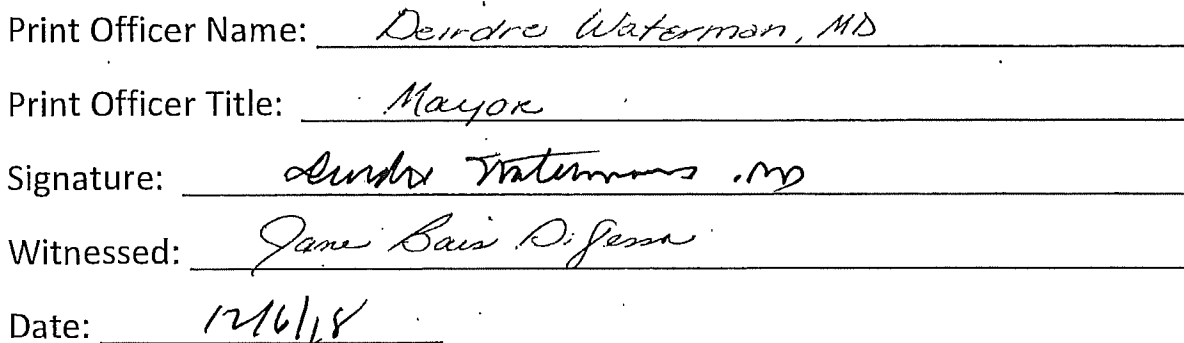 Print Officer Name: Deirdre Waterman, MD
Print Officer Title: Mayor
Signature: Deirdre Waterman, MD
Witnessed: Jane Bais DiSessa
Date: 12/6/18